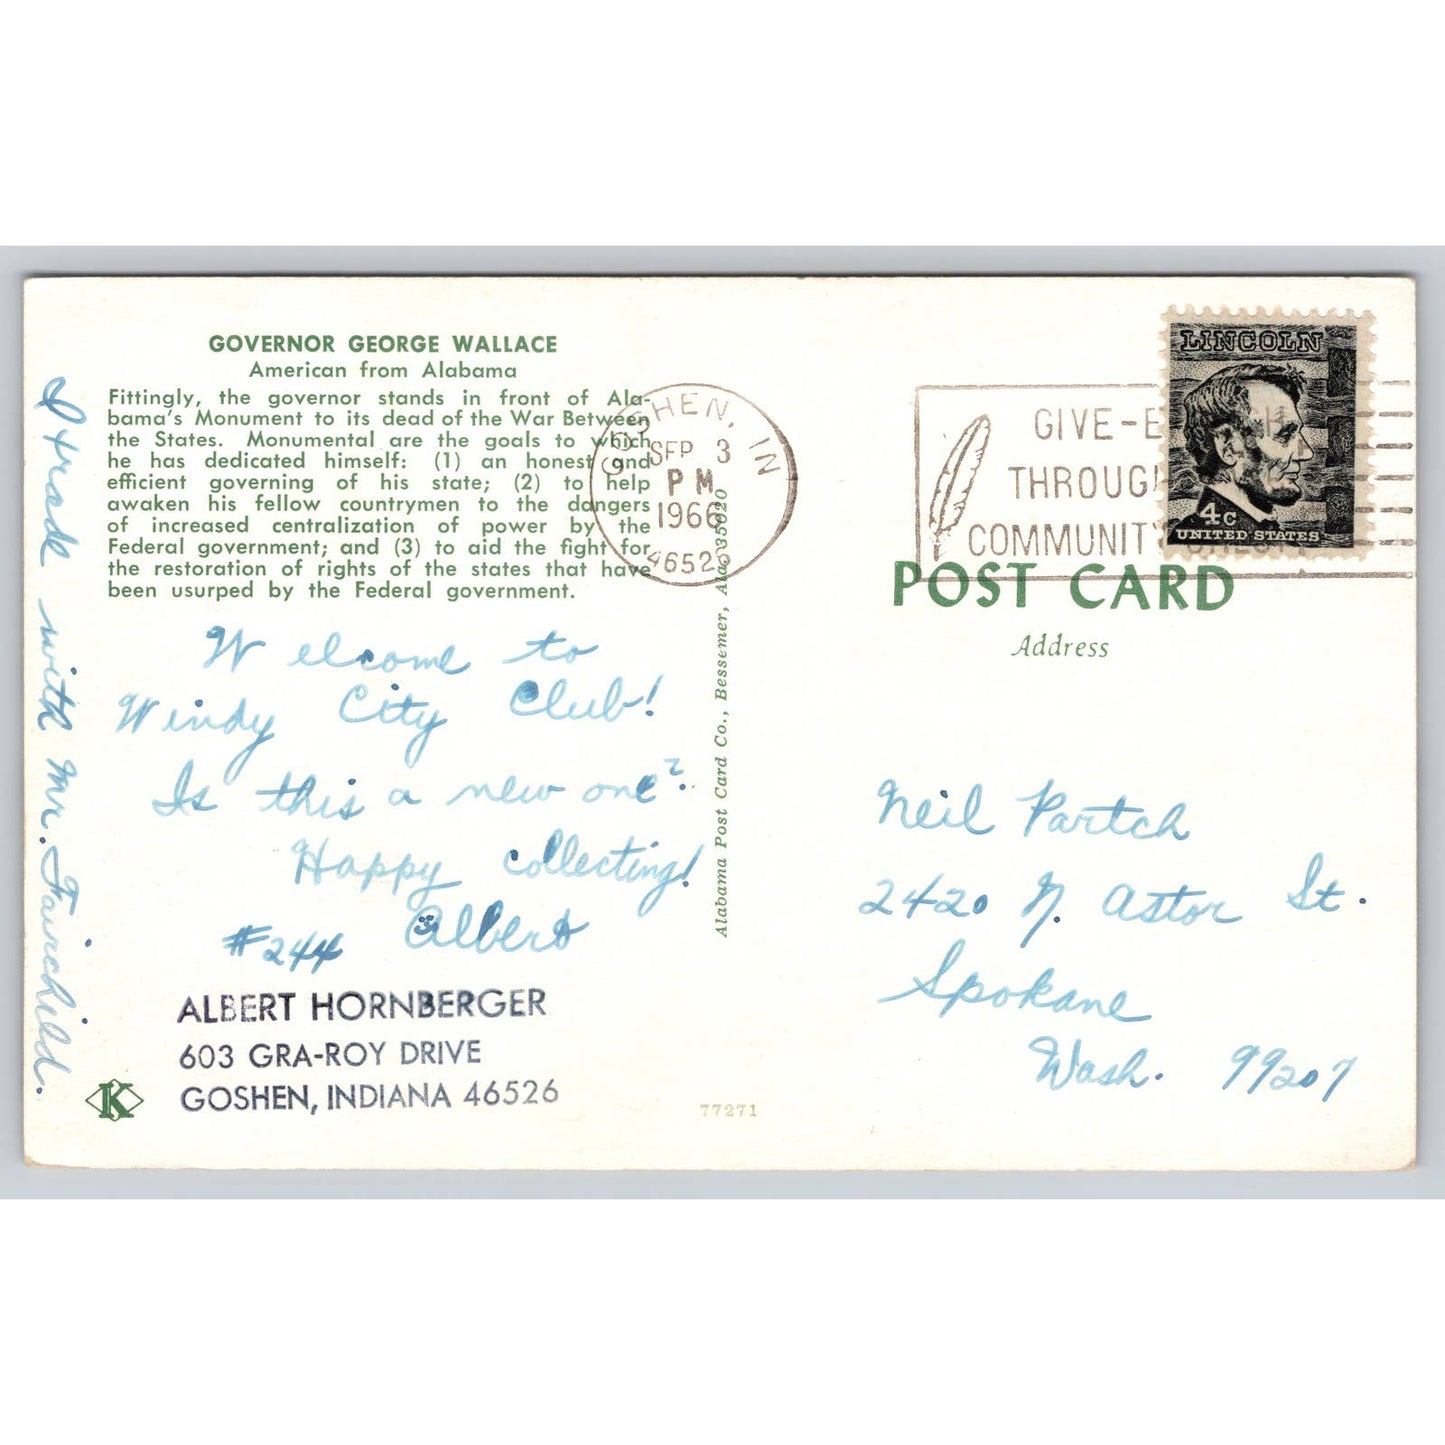 GOVERNOR GEORGE WALLACE
American from Alabama
Fittingly, the governor stands in front of Ala-
bama's Monument to its dead of the War Between
the States. Monumental are the goals to which
he has dedicated himself: (1) an honest and
efficient governing of his state; (2) to help
awaken his fellow countrymen to the dangers
of increased centralization of power by the
Federal government; and (3) to aid the fight for
the restoration of rights of the states that have
been usurped by the Federal government.
I trade with Mr. Fairchild.
Welcome to
Windy City Club!
Is this a new one?
Happy collecting!
#244 Albert
ALBERT HORNBERGER
603 GRA-ROY DRIVE
GOSHEN, INDIANA 46526
K
77271
Alabama Post Card Co., Bessemer, Ala. 35020
GOSHEN, IN
SEP 3
PM
1966
46526
GIVE-
THROUGH
COMMUNITY
LINCOLN
4c
UNITED STATES
POST CARD
Address
Neil Partch
2420 N. Astor St.
Spokane
Wash. 99207